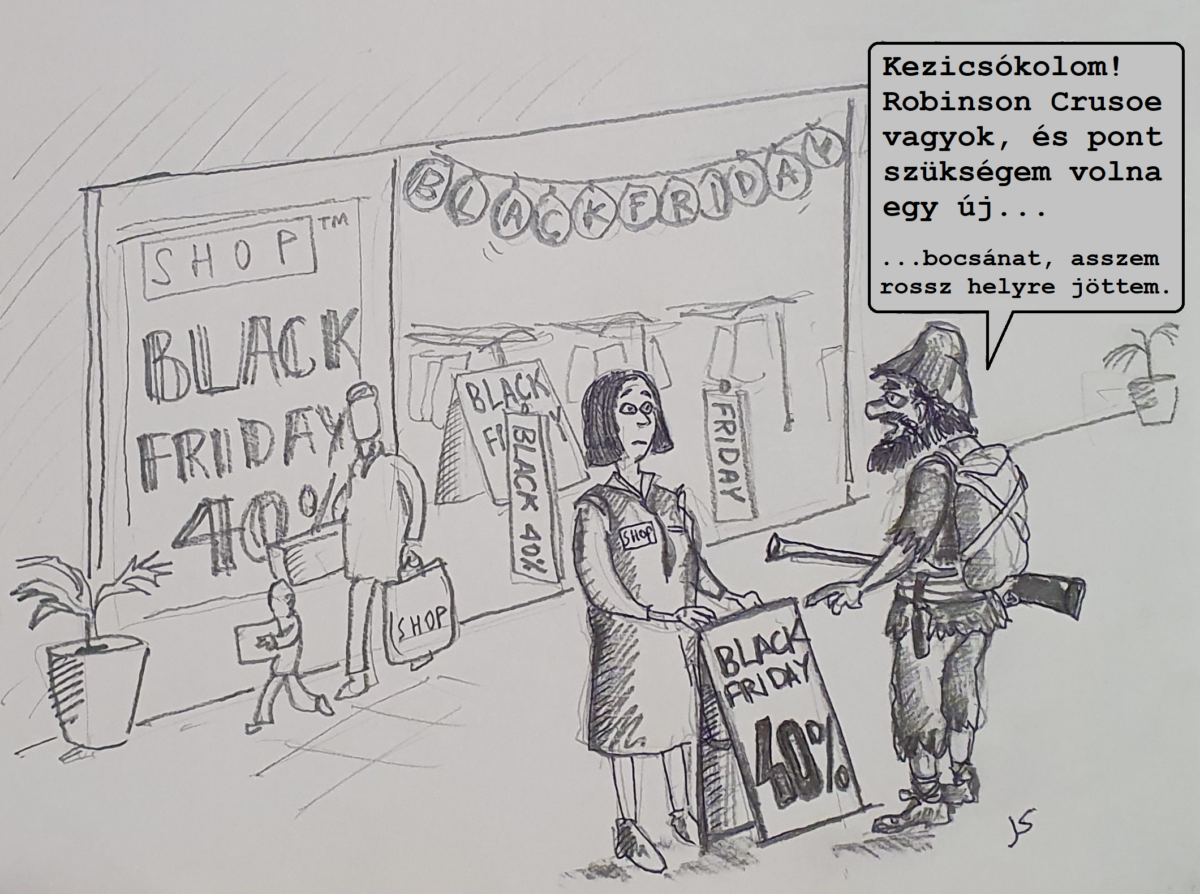 Kezicsókolom!
Robinson Crusoe
vagyok, és pont
szükségem volna
egy új...
...bocsánat, asszem
rossz helyre jöttem.
BLACKFRIDAY
SHOP™
BLACK
FRIDAY
40%
BLACK
FRIDAY
BLACK 40%
FRIDAY
SHOP
SHOP
BLACK
FRIDAY
40%
JS